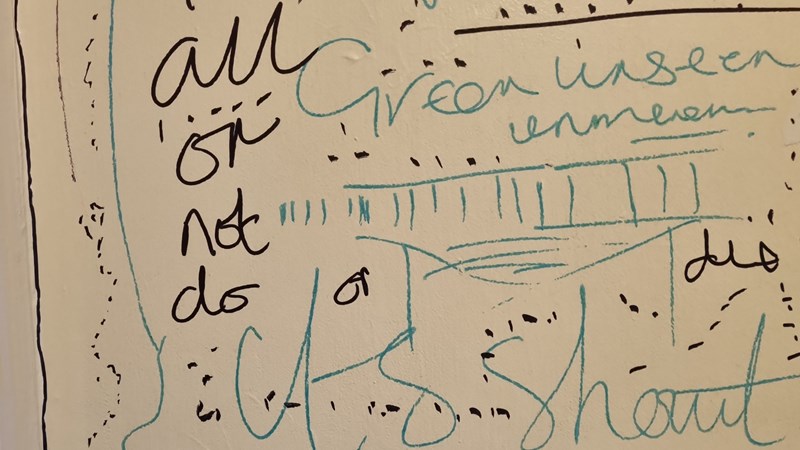 all
Green unseen
or
not
do or
Shout